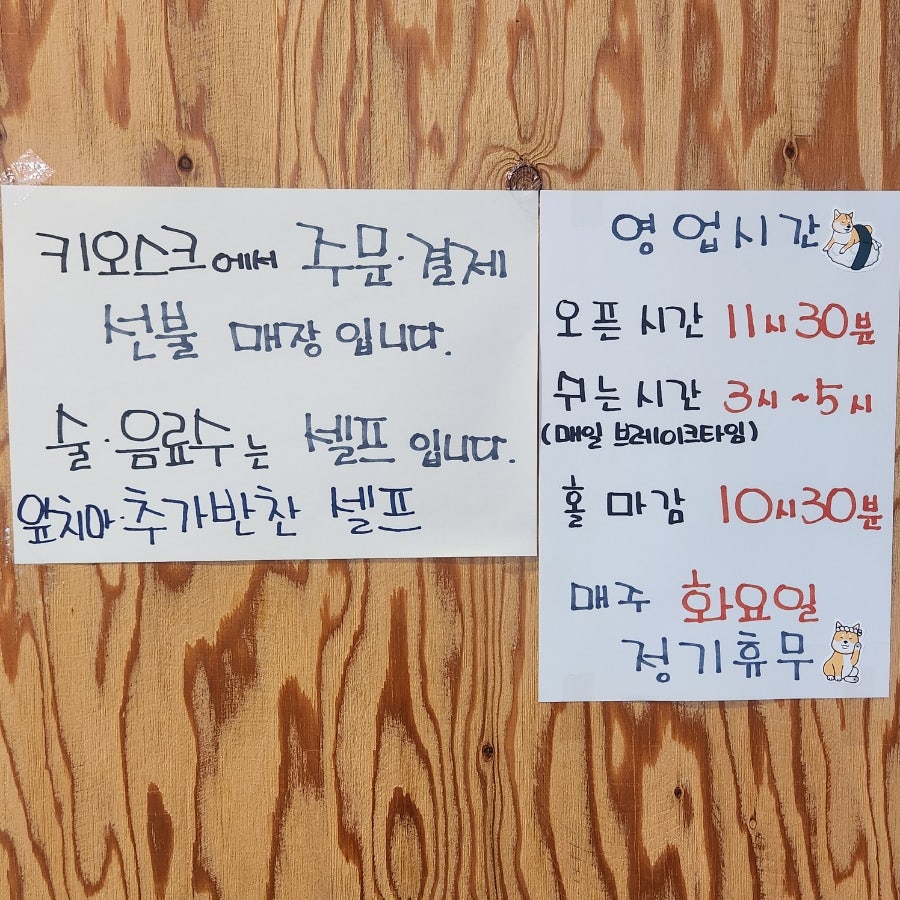 키오스크에서 주문·결제
선불 매장입니다.
술·음료수는 셀프입니다.
앞치마·추가반찬 셀프
영업시간
오픈시간 11시30분
쉬는시간 3시~5시
(매일 브레이크타임)
홀 마감 10시30분
매주 화요일
정기휴무